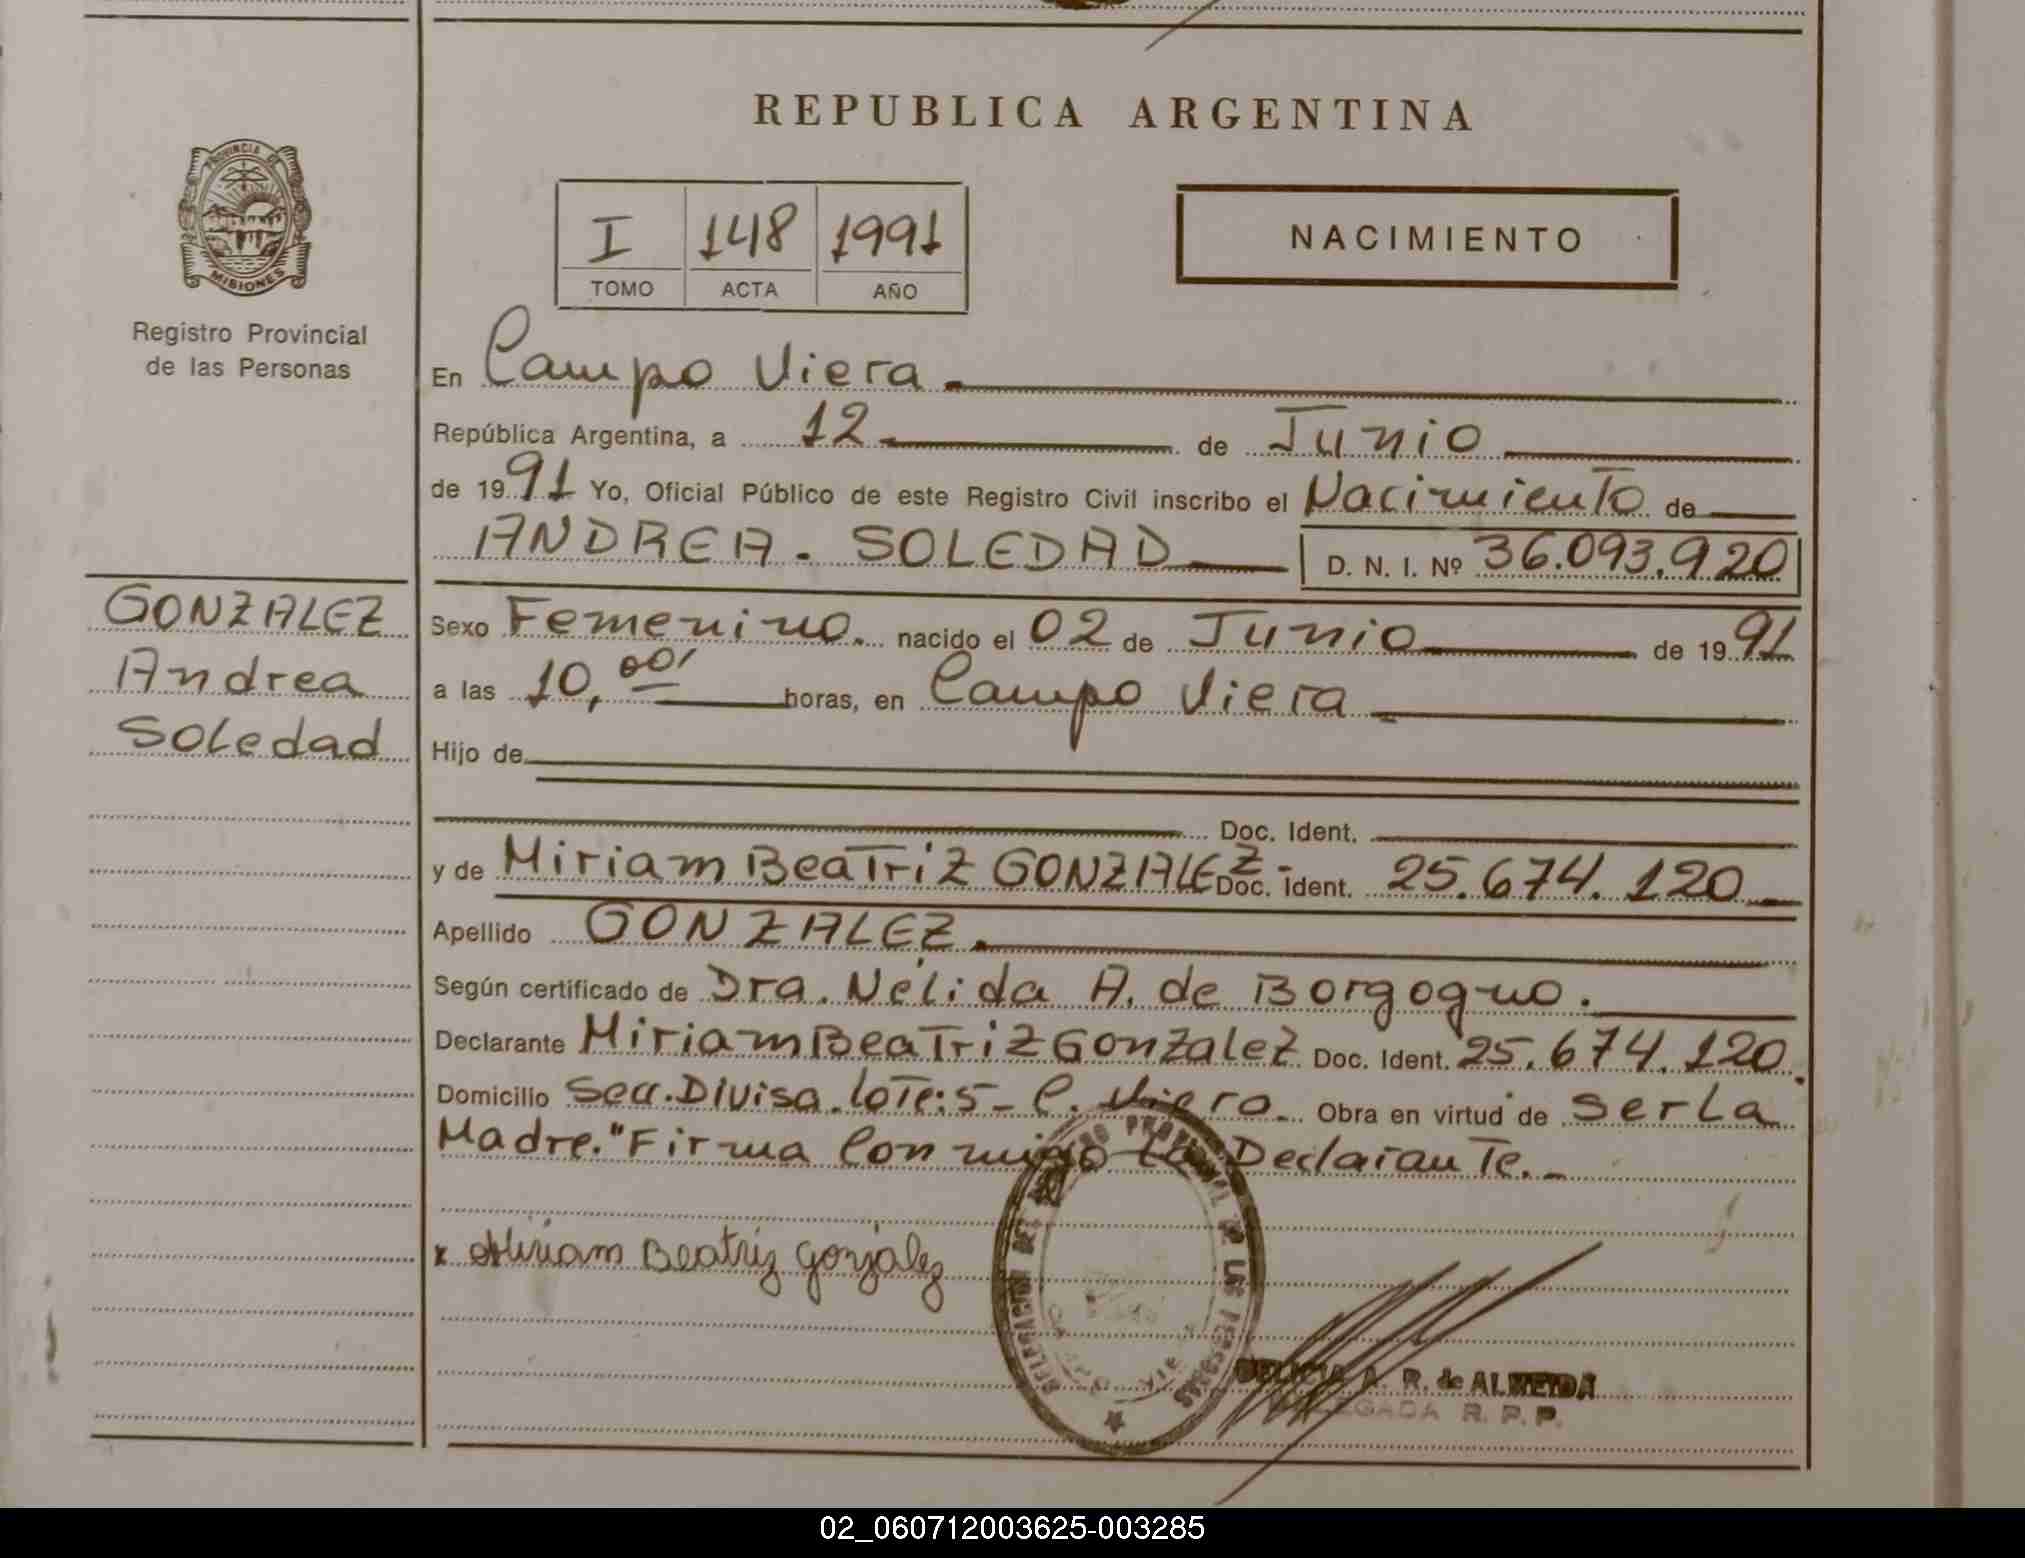 REPUBLICA ARGENTINA
PROVINCIA DE
MISIONES
Registro Provincial
de las Personas
I 148 1991
TOMO ACTA AÑO
NACIMIENTO
En Campo Viera.
República Argentina, a 12 de Junio
de 1991 Yo, Oficial Público de este Registro Civil inscribo el Nacimiento de
ANDREA - SOLEDAD D. N. I. Nº 36.093.920
GONZALEZ
Andrea
Soledad
Sexo Femenino. nacido el 02 de Junio de 1991
a las 10,00' horas, en Campo Viera
Hijo de
Doc. Ident.
y de Miriam Beatriz GONZALEZ- Doc. Ident. 25.674.120
Apellido GONZALEZ.
Según certificado de Dra. Nélida A. de Borgogno.
Declarante Miriam Beatriz Gonzalez Doc. Ident. 25.674.120.
Domicilio Secc. Divisa. lote: 5- C. Viera. Obra en virtud de ser La
Madre. "Firma Conmigo La Declarante.-
x Miriam Beatriz González
DELEGACION DEL REGISTRO PROVINCIAL DE LAS PERSONAS
CAMPO VIERA
DELICIA A. R. de ALMEIDA
DELEGADA R. P. P.
02_060712003625-003285